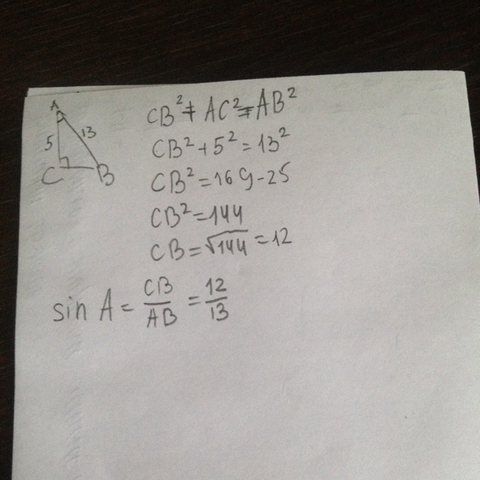 A
5
13
C
B
CB² + AC² = AB²
CB² + 5² = 13²
CB² = 169 - 25
CB² = 144
CB = √144 = 12
sin A = CB/AB = 12/13